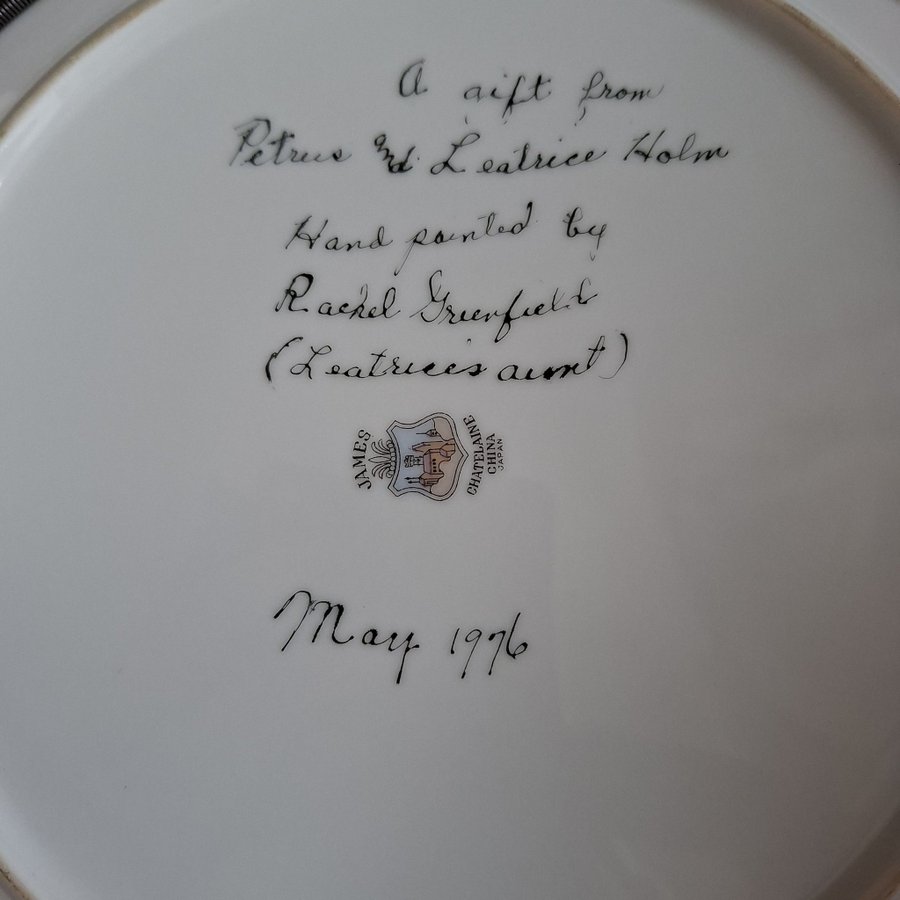 A gift from
Petrus and Leatrice Holm
Hand painted by
Rachel Greenfield
(Leatrice's aunt)
JAMES
CHATELAINE
CHINA
JAPAN
May 1976